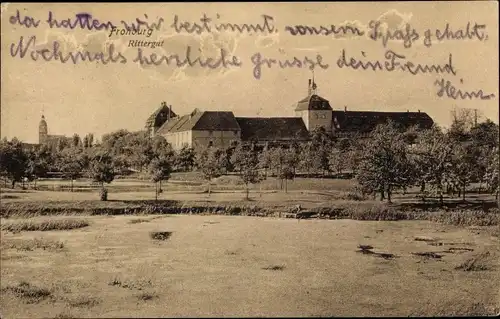 da hätten wir bestimmt unsern Spass gehabt.
Frohburg
Rittergut
Nochmals herzliche grüsse dein Freund
Heinr